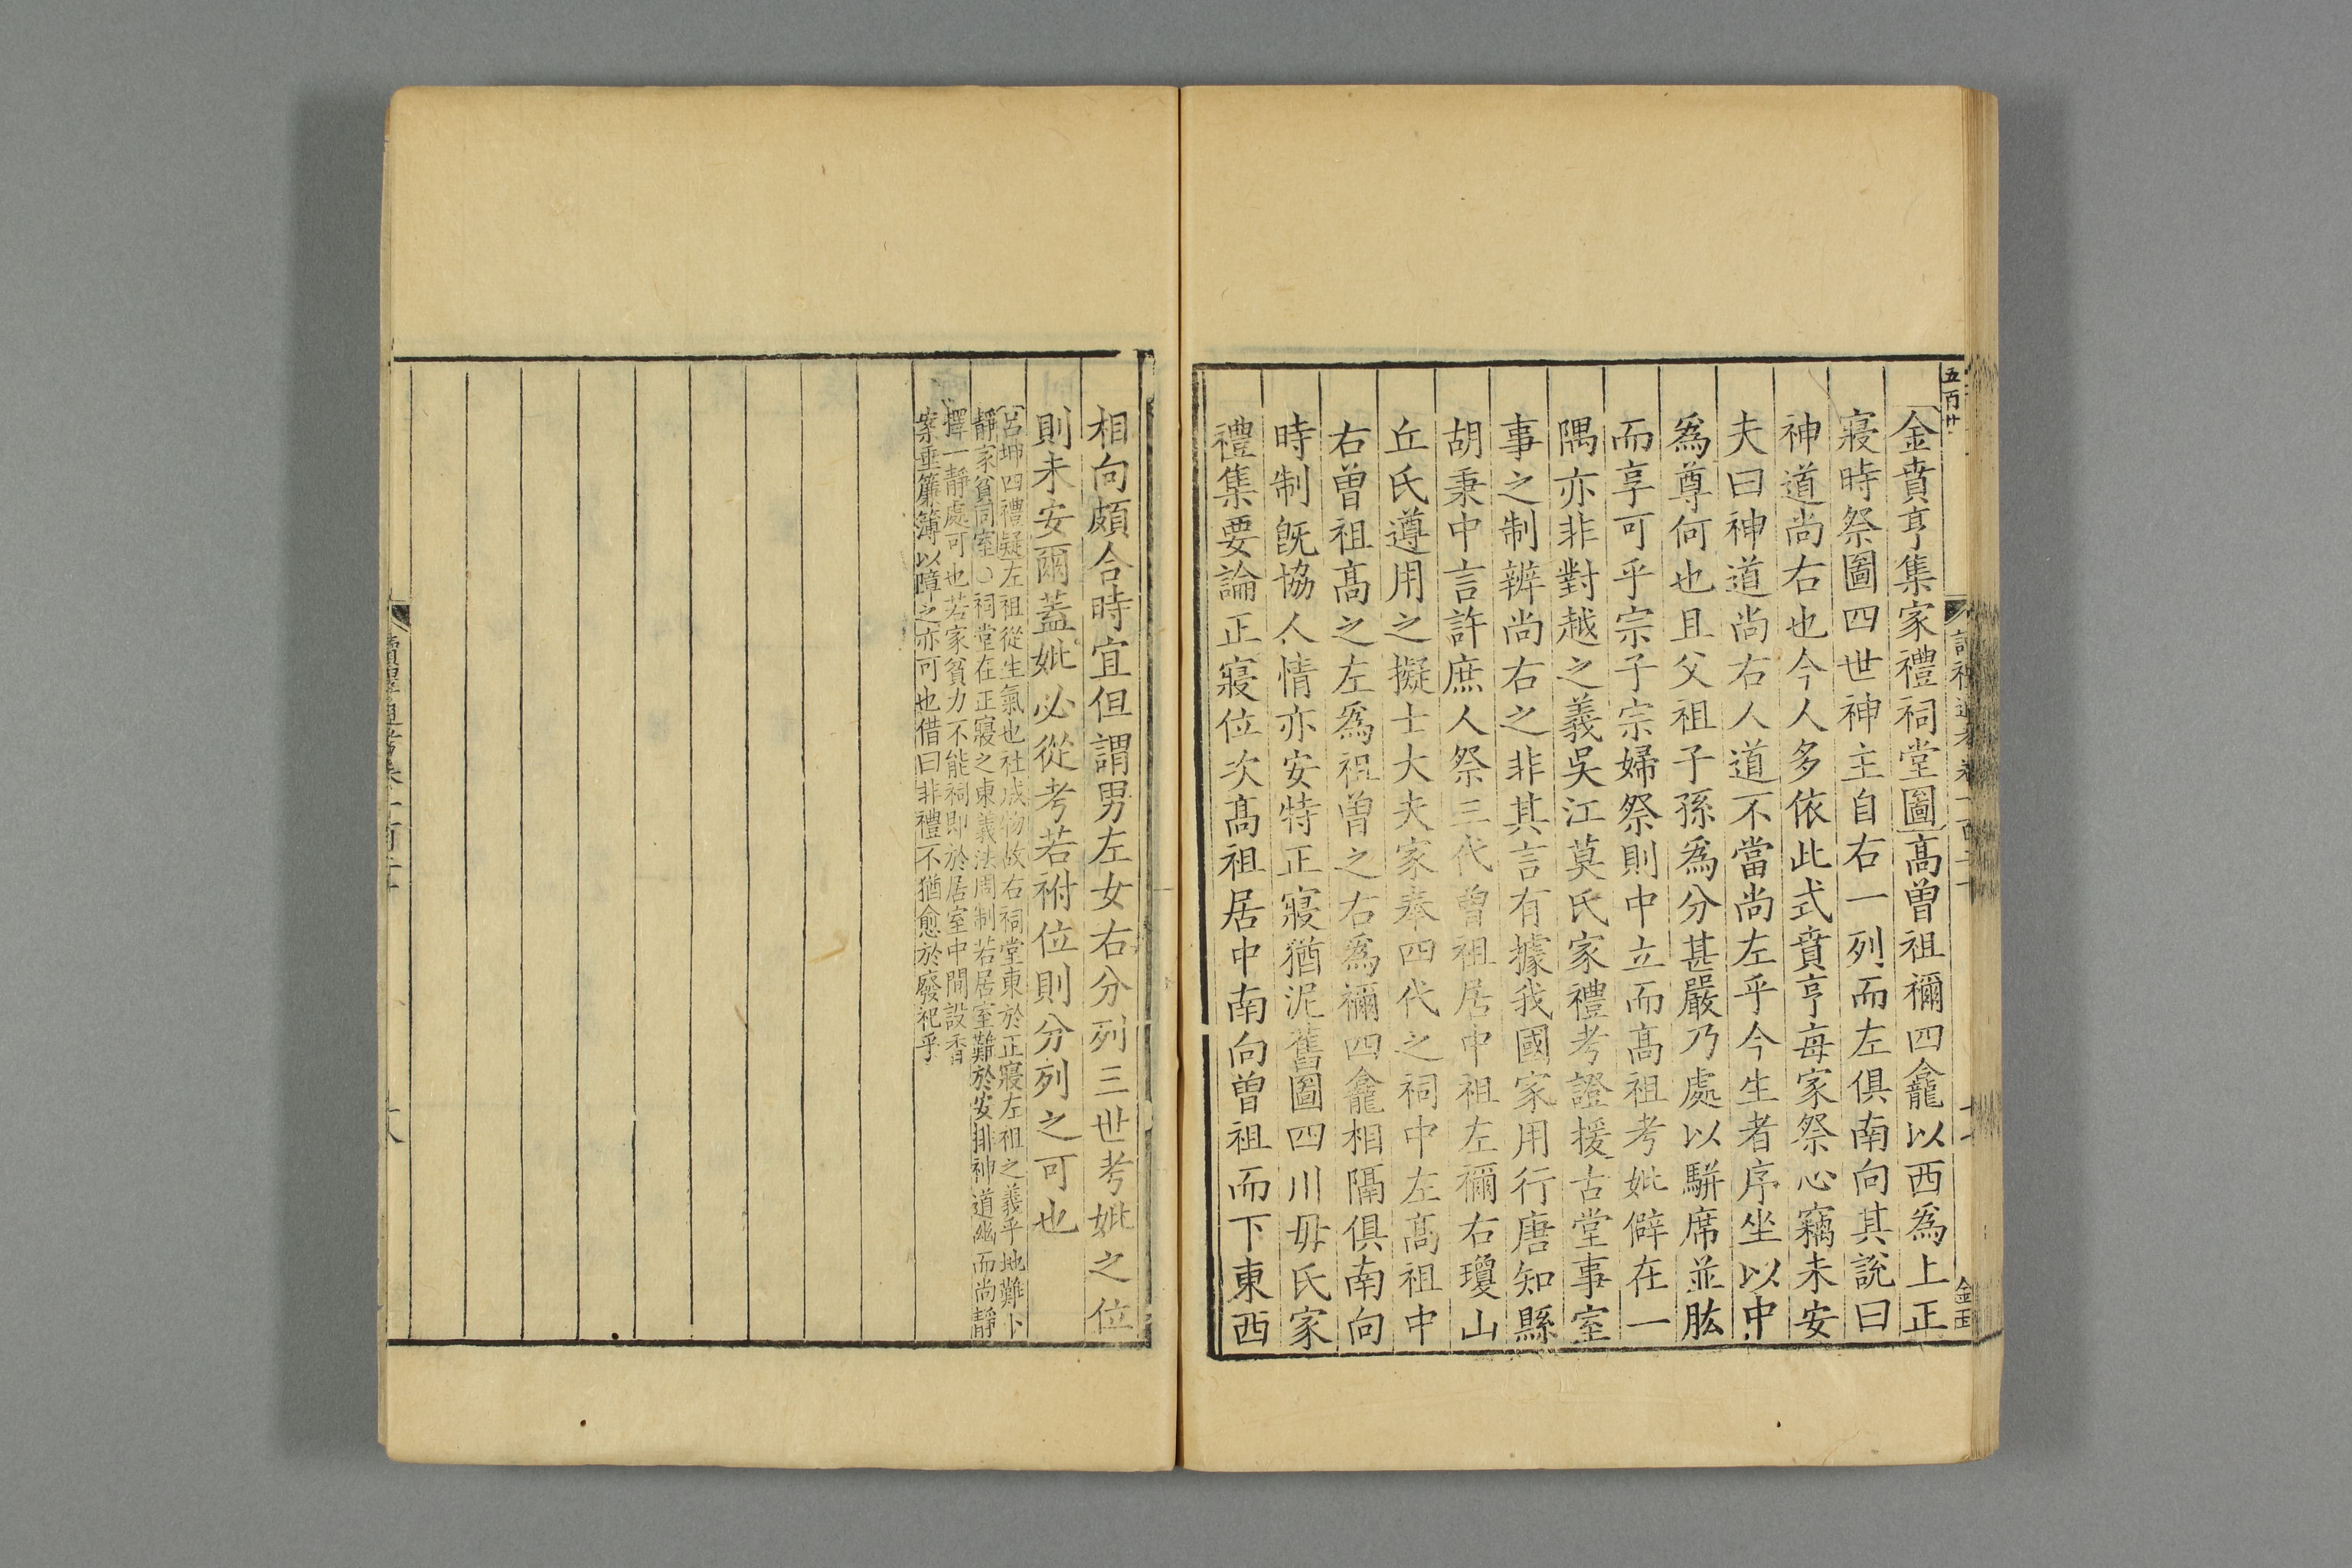 五百廿
金賁亨集家禮祠堂圖高曾祖禰四龕以西爲上正
寢時祭圖四世神主自右一列而左俱南向其說曰
神道尚右也今人多依此式賁亨每家祭心竊未安
夫曰神道尚右人道不當尚左乎今生者序坐以中
爲尊何也且父祖子孫爲分甚嚴乃處以駢席並肱
而享可乎宗子宗婦祭則中立而高祖考妣僻在一
隅亦非對越之義吳江莫氏家禮考證援古堂事室
事之制辨尚右之非其言有據我國家用行唐知縣
胡秉中言許庶人祭三代曾祖居中祖左禰右瓊山
丘氏遵用之擬士大夫家奉四代之祠中左高祖中
右曾祖高之左爲祖曾之右爲禰四龕相隔俱南向
時制旣協人情亦安特正寢猶泥舊圖四川毋氏家
禮集要論正寢位次高祖居中南向曾祖而下東西
金玉
相向頗合時宜但謂男左女右分列三世考妣之位
則未安爾蓋妣必從考若祔位則分列之可也
呂坤四禮疑左祖從生氣也社成物故右祠堂東於正寢左祖之義乎地難卜
靜家貧同室○祠堂在正寢之東義法周制若居室難於安排神道幽而尚靜
擇一靜處可也若家貧力不能祠即於居室中間設香
案垂簾簿以障之亦可也借曰非禮不猶愈於廢祀乎